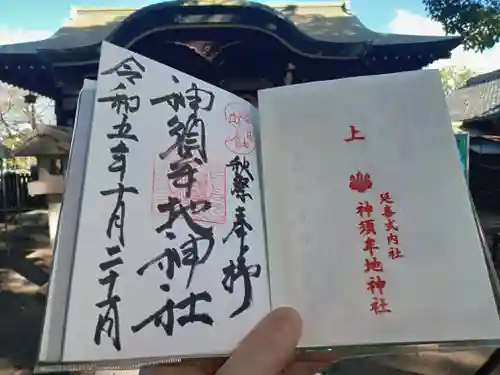 延喜式内社
神須牟地神社
上
秋祭奉拝
神須牟地神社
令和五年十月二十六日